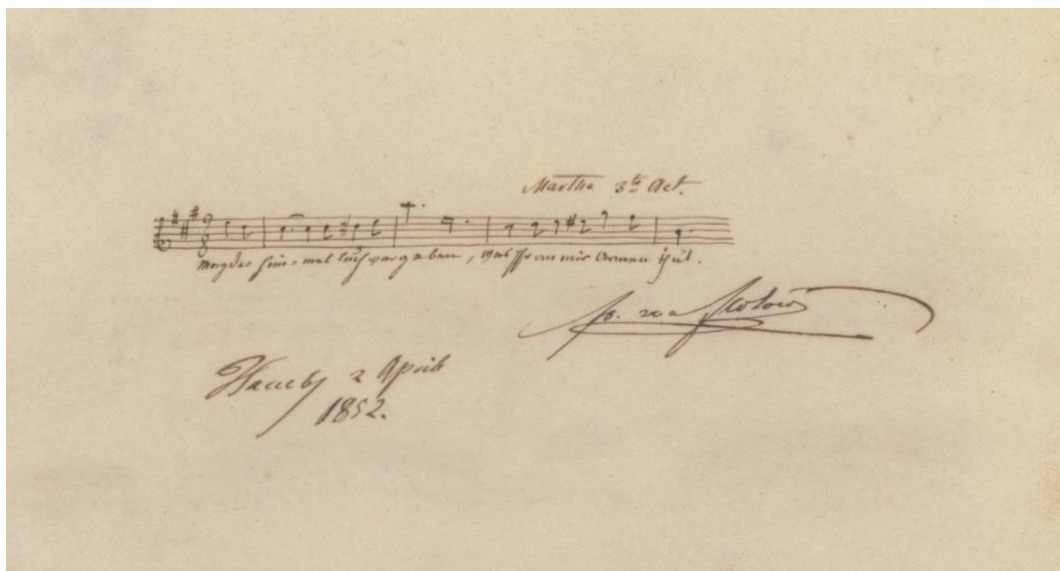 Martha 3te Act.
Mag der Himmel Euch vergeben, was Ihr an mir Armen thut.
Fr. von Flotow
2 April
1852.